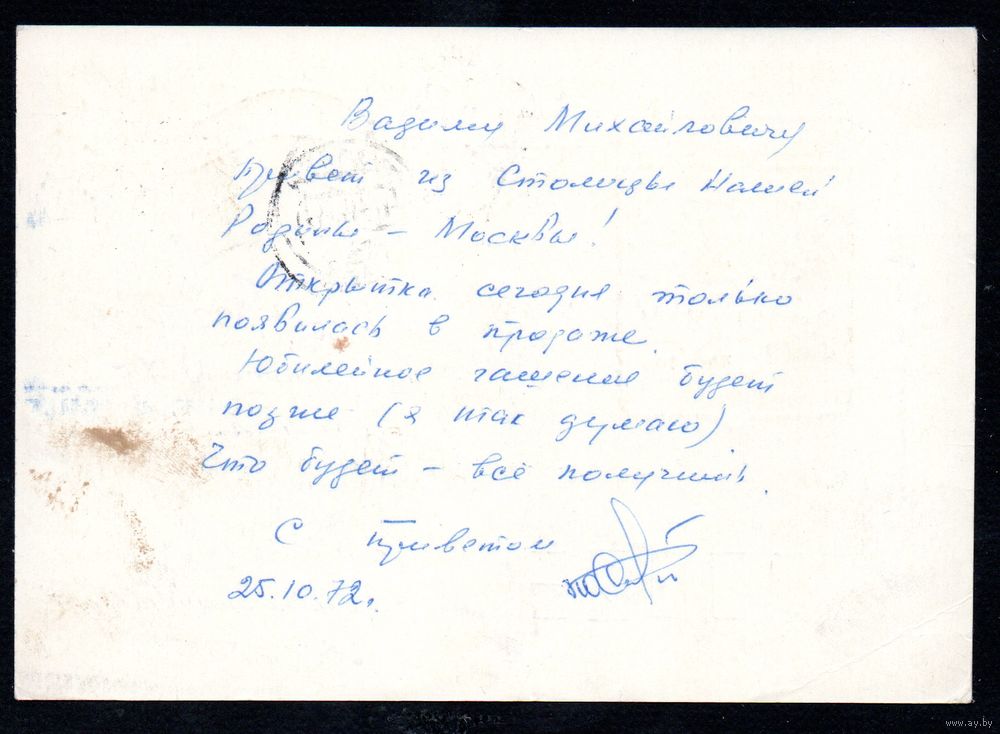 Вадиму Михайловичу
Привет из Столицы Нашей
Родины – Москвы!
Открытка сегодня только
появилась в продаже.
Юбилейное гашение будет
позже (я так думаю)
Что будет – всё получишь.
С приветом
25.10.72г.
www.ay.by